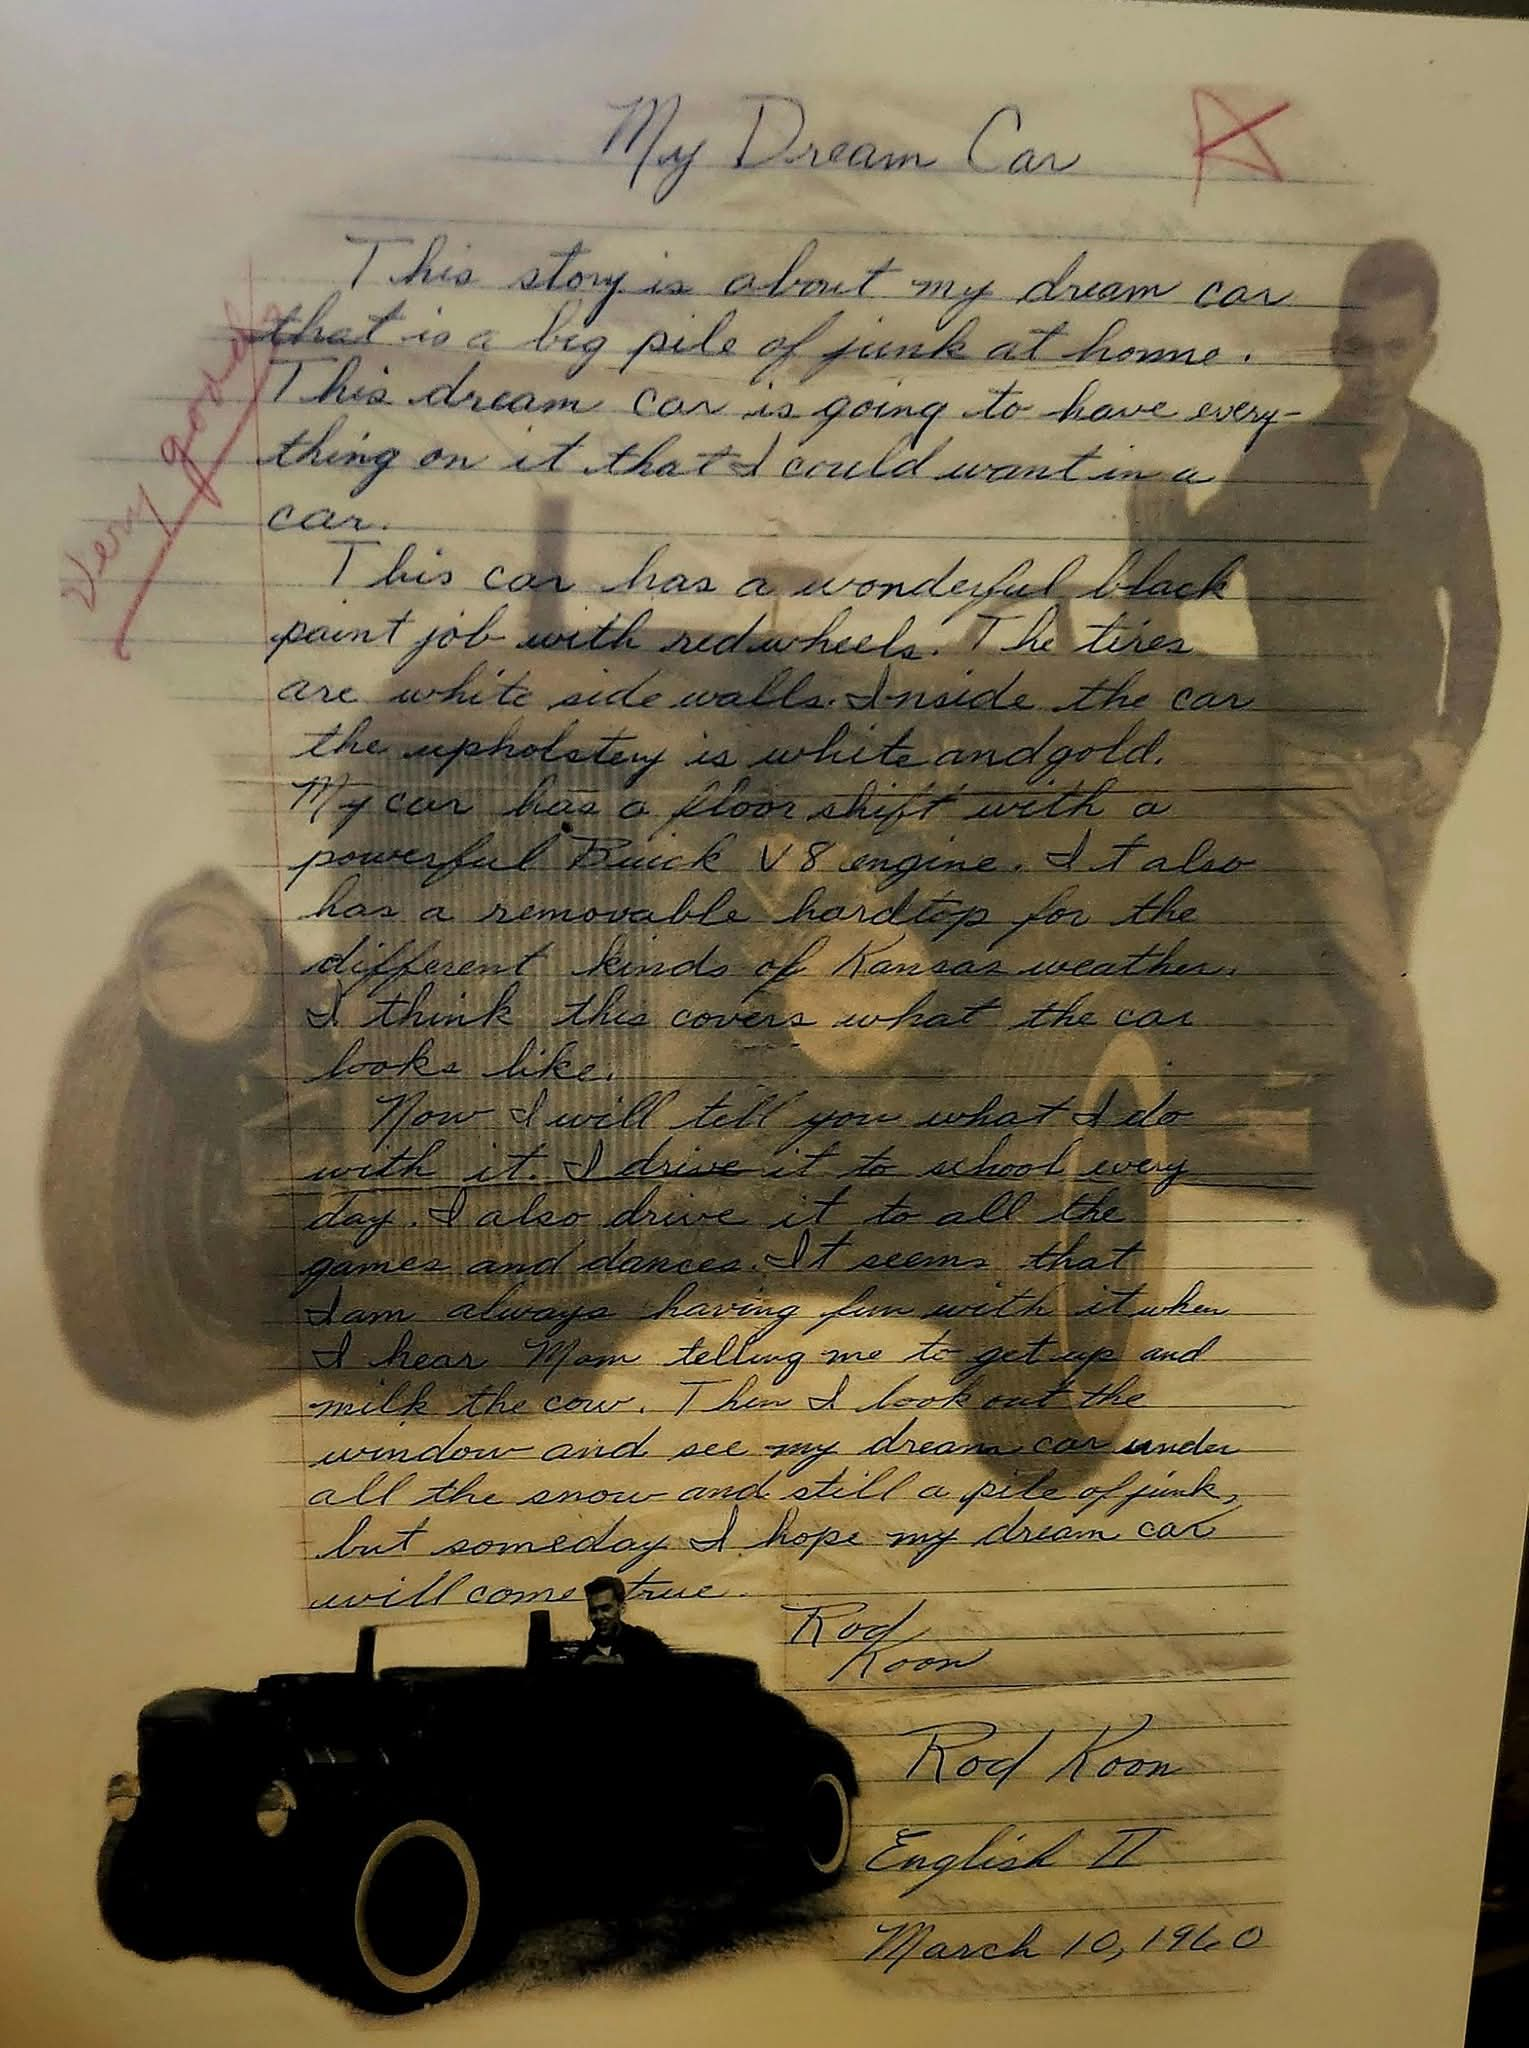 My Dream Car
A
Very good
This story is about my dream car
that is a big pile of junk at home.
This dream car is going to have every-
thing on it that I could want in a
car.
This car has a wonderful black
paint job with red wheels. The tires
are white side walls. Inside the car
the upholstery is white and gold.
My car has a floor shift with a
powerful Buick V8 engine. It also
has a removable hardtop for the
different kinds of Kansas weather.
I think this covers what the car
looks like.
Now I will tell you what I do
with it. I drive it to school every
day. I also drive it to all the
games and dances. It seems that
I am always having fun with it when
I hear Mom telling me to get up and
milk the cow. Then I look out the
window and see my dream car under
all the snow and still a pile of junk,
but someday I hope my dream car
will come true.
Rod
Koon
Rod Koon
English II
March 10, 1960